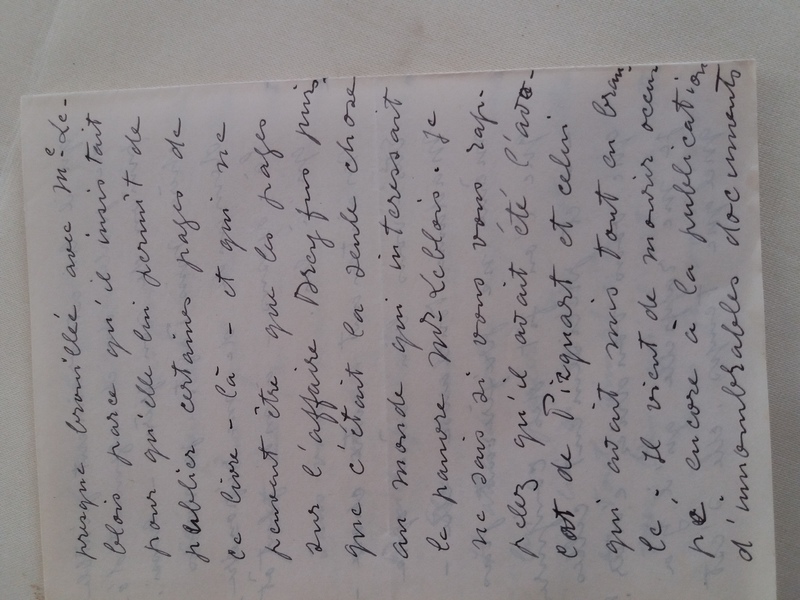 presque brouillée avec Me. Le-
blois parce qu'il insistait
pour qu'elle lui permit de
publier certaines pages de
ce livre-là - et qui ne
peuvent être que les pages
sur l'affaire Dreyfus puis-
que c'était la seule chose
au monde qui interessait
le pauvre Mr Leblois. Je
ne sais si vous vous rap-
pelez qu'il avait été l'avo-
cat de Picquart et celui
qui avait mis tout en bran-
le. Il vient de mourir occu-
pé encore à la publication
d'innombrables documents